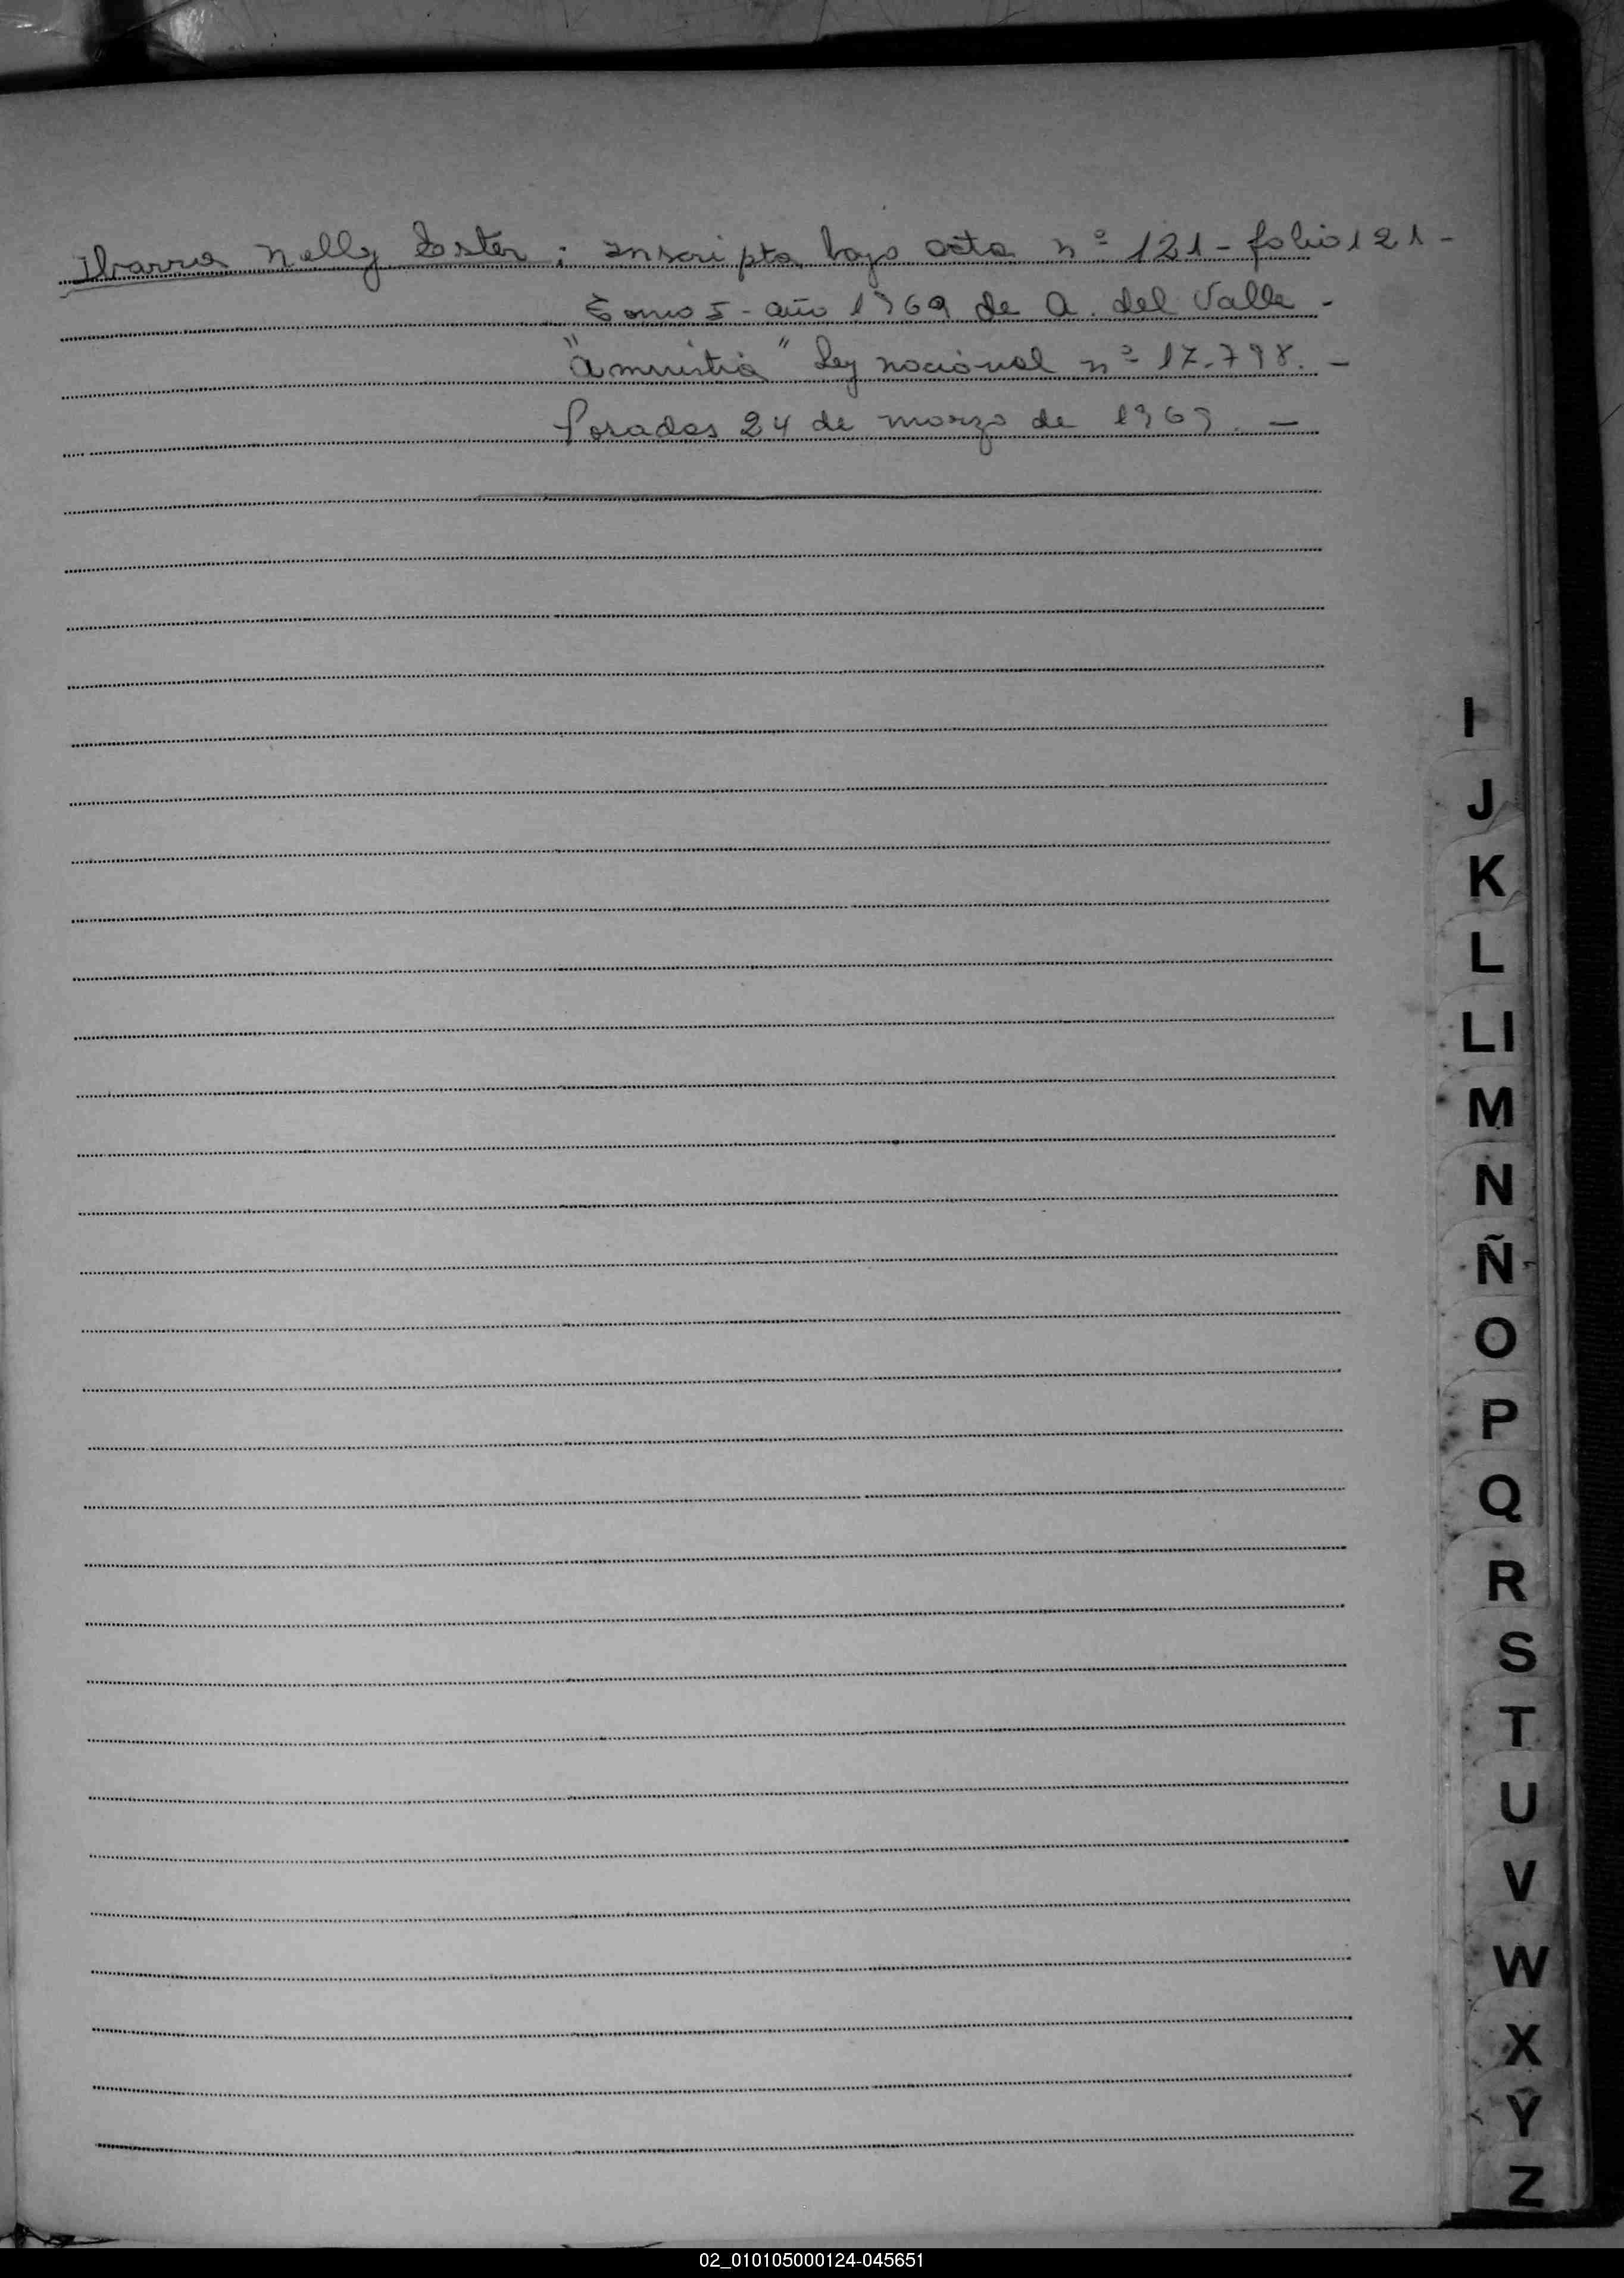 Ibarra Nelly Ester : Inscripta bajo acta nº 121 - folio 121 -
Tomo I - año 1969 de A. del Valle -
"Amnistia" Ley nacional nº 17.798. -
Posadas 24 de marzo de 1969. -
I
J
K
L
Ll
M
N
Ñ
O
P
Q
R
S
T
U
V
W
X
Y
Z
02_010105000124-045651